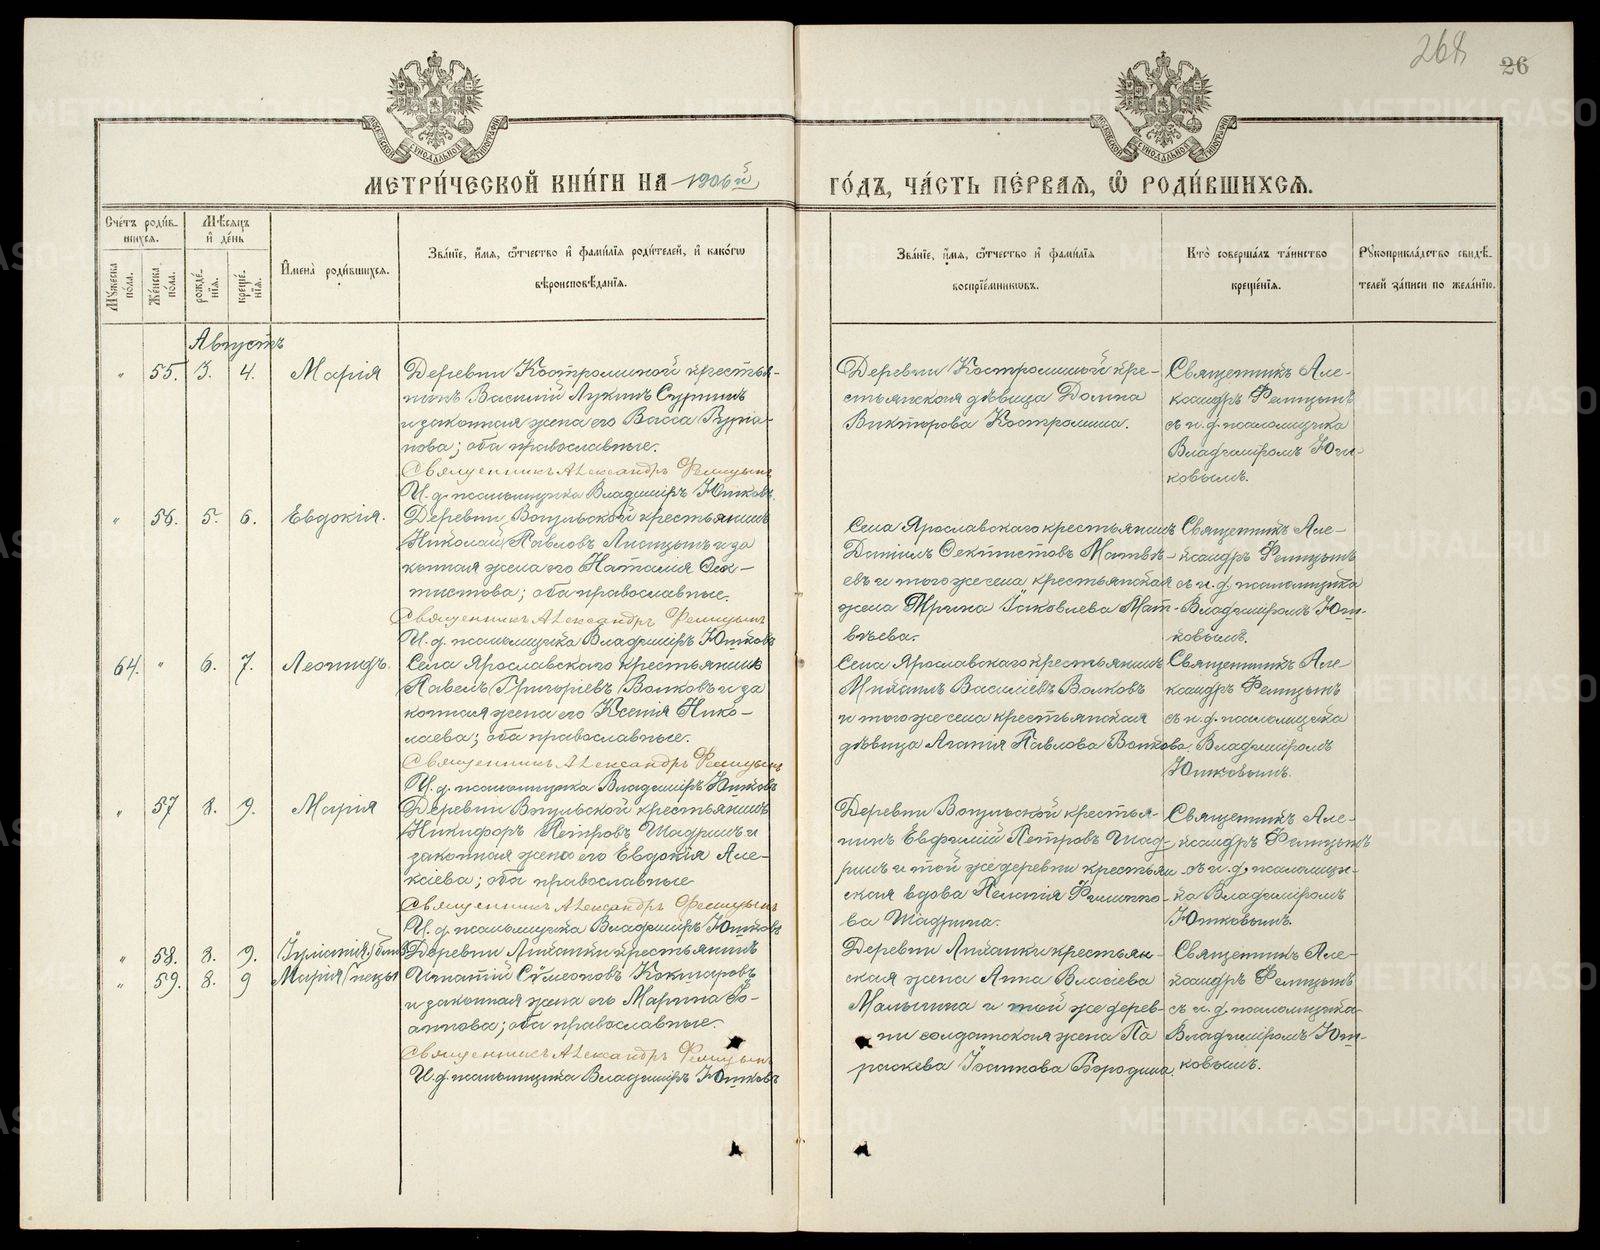 268
26
МЕТРИ́ЧЕСКОЙ КНИ́ГИ НА 1906й
ГО́ДЪ, ЧА́СТЬ ПЕ́РВАЯ, Ѡ РОДИ́ВШИХСЯ.
Сче́тъ роди́в-
шихся.
Мѣ́сяцъ
и҆ де́нь
Му́жеска по́ла.
Же́нска по́ла.
рожде́-
нїя.
креще́-
нїя.
И҆мена̀ роди́вшихся.
Зва́нїе, и҆́мя, ѻ҆́тчество и҆ фами́лїя роди́телей, и҆ како́гѡ
вѣроисповѣ́данїя.
Зва́нїе, и҆́мя, ѻ҆́тчество и҆ фами́лїя
воспрїе́мниковъ.
Кто̀ соверша́лъ та́инство
креще́нїя.
Рꙋкоприкла́дство свидѣ́-
телей за́писи по жела́нїю.
Августъ
" 55. 3. 4. Марія
Деревни Костроминой крестья-
нинъ Василій Лукинъ Суринъ
и законная жена его Васса Гурiа-
нова; оба православные.
Священникъ Александръ Феліцынъ
И. д. псаломщика Владиміръ Ютковъ
Деревни Костроминой кре-
стьянская дѣвица Домна
Викторова Костромина.
Священникъ Але-
ксандръ Феліцынъ
съ и. д. псаломщика
Владиміромъ Ют-
ковымъ.
" 56. 5. 6. Евдокія.
Деревни Вогульской крестьянинъ
Николай Павловъ Лисицынъ и за
конная жена его Наталія Ѳек-
тистова; оба православные.
Священникъ Александръ Феліцынъ
И. д. псаломщика Владиміръ Ютковъ
Села Ярославскаго крестьянинъ
Даніилъ Ѳектистовъ Матвѣ-
евъ и того же села крестьянская
жена Ирина Іаковлева Мат-
вѣева.
Священникъ Але-
ксандръ Феліцынъ
съ и. д. псаломщика
Владиміромъ Ют-
ковымъ.
64. " 6. 7. Леонидъ.
Села Ярославскаго крестьянинъ
Павелъ Григоріевъ Волковъ и за
конная жена его Ксенія Нико-
лаева; оба православные.
Священникъ Александръ Феліцынъ
И. д. псаломщика Владиміръ Ютковъ
Села Ярославскаго крестьянинъ
Михаилъ Василіевъ Волковъ
и того же села крестьянская
дѣвица Агапія Павлова Волкова
Священникъ Але-
ксандръ Феліцынъ
съ и. д. псаломщика
Владиміромъ
Ютковымъ.
" 57 8. 9. Марія
Деревни Вогульской крестьянинъ
Никифоръ Петровъ Шадринъ и
законная жена его Евдокія Але-
ксіева; оба православные
Священникъ Александръ Феліцынъ
И. д. псаломщика Владиміръ Ютковъ
Деревни Вогульской крестья-
нинъ Евфимій Петровъ Шад-
ринъ и той же деревни крестьян-
ская вдова Пелагія Филиппо-
ва Шадрина.
Священникъ Але-
ксандръ Феліцынъ
съ и. д. псаломщи-
ка Владиміромъ
Ютковымъ.
" 58. 8. 9. Іуліанія
" 59. 8. 9 Марія
Деревни Лиханки крестьянинъ
Игнатій Сѵмеоновъ Кокшаровъ
и законная жена его Марина Іо-
аннова; оба православные.
Священникъ Александръ Феліцынъ
И. д. псаломщика Владиміръ Ютковъ
Деревни Лиханки крестьян-
ская жена Анна Власіева
Малыгина и той же дерев-
ни солдатская жена Па
раскева Іоаннова Бородина.
Священникъ Але-
ксандръ Феліцынъ
съ и. д. псаломщика
Владиміромъ Ют-
ковымъ.
METRIKI.GASO-URAL.RU